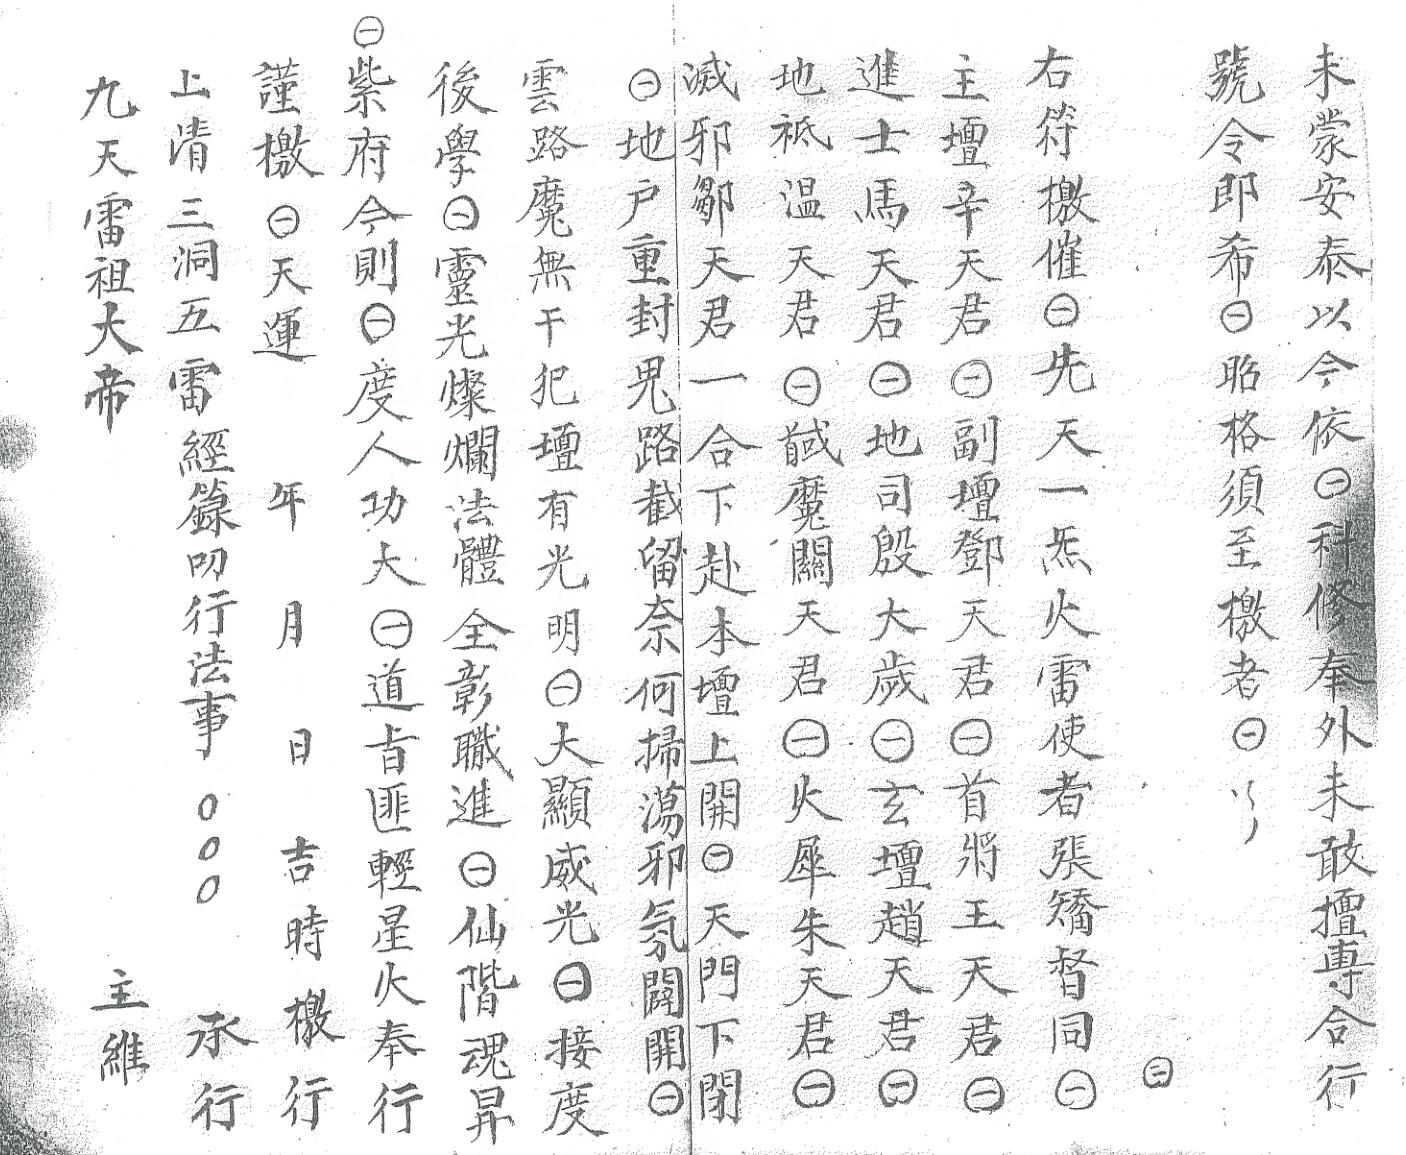 未蒙安泰以今依㊀科修奉外未敢擅專合行
號令即希㊀昭格須至檄者㊀
㊁
右符檄催㊀先天一炁火雷使者張矯督同㊀
主壇辛天君㊀副壇鄧天君㊀首將王天君㊀
進士馬天君㊀地司殷大歲㊀玄壇趙天君㊀
地祗溫天君㊀馘魔關天君㊀火犀朱天君㊀
滅邪鄒天君一合下赴本壇上開㊀天門下閉
㊀地户重封鬼路截留奈何掃蕩邪氛闢開㊀
雲路魔無干犯壇有光明㊀大顯威光㊀接度
後學㊀靈光燦爛法體全彰職進㊀仙階魂昇
㊀紫府令則㊀度人功大㊀道旨匪輕星火奉行
謹檄㊀天運 年 月 日吉時檄行
上清三洞五雷經籙叨行法事○○○ 承行
九天雷祖大帝 主維